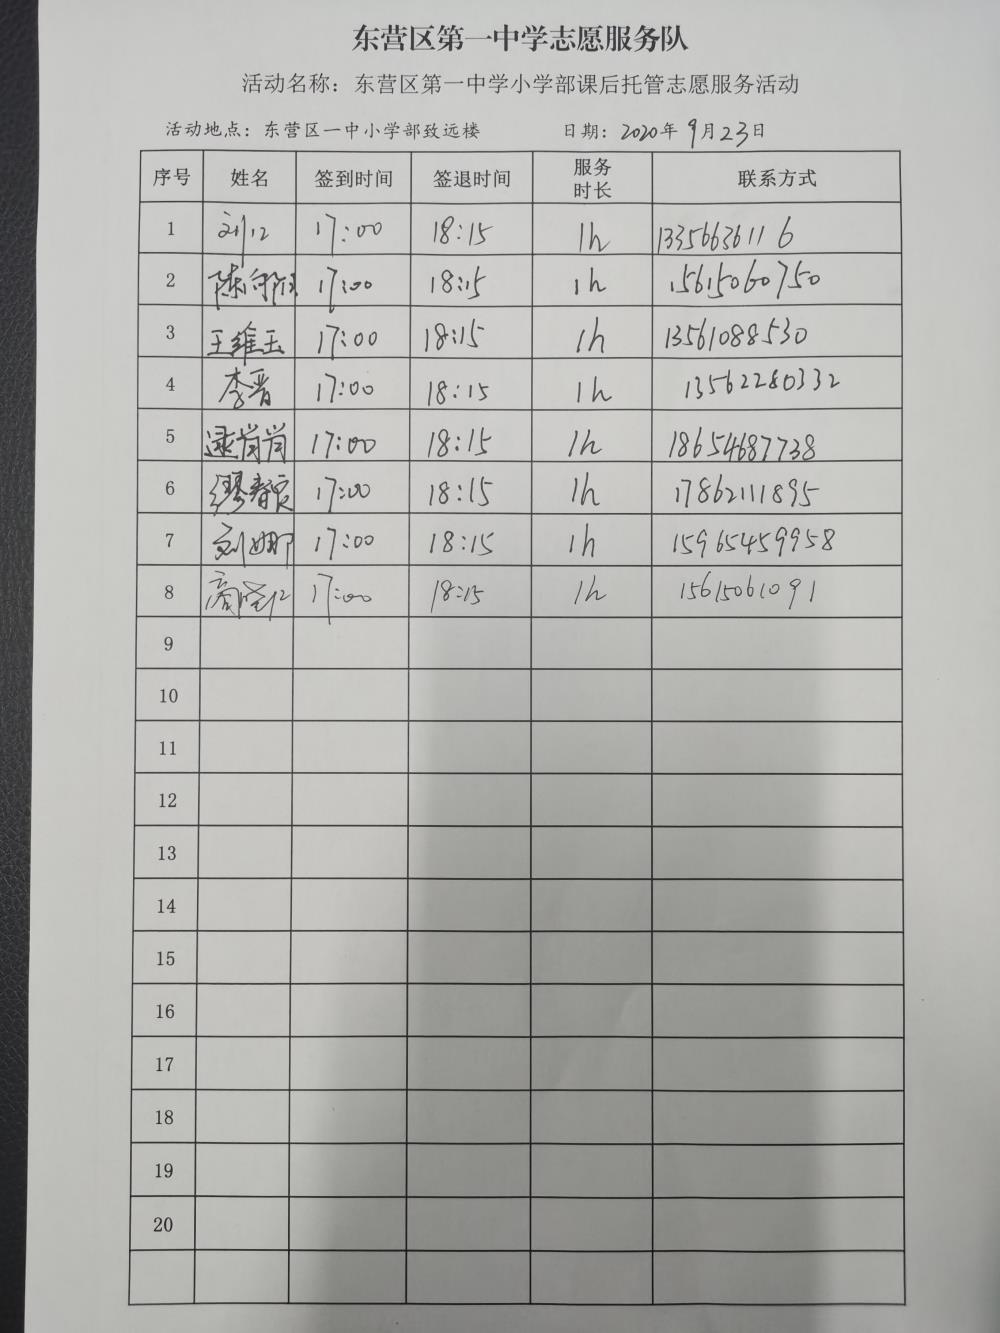 东营区第一中学志愿服务队
活动名称：东营区第一中学小学部课后托管志愿服务活动
活动地点：东营区一中小学部致远楼 日期：2020年9月23日
序号 姓名 签到时间 签退时间 服务时长 联系方式
1 17:00 18:15 1h 13356636116
2 17:00 18:15 1h 15615060750
3 王维玉 17:00 18:15 1h 13561088530
4 李晋 17:00 18:15 1h 13562280332
5 逯尚尚 17:00 18:15 1h 18654687738
6 17:00 18:15 1h 17862111895
7 刘娜 17:00 18:15 1h 15965459958
8 17:00 18:15 1h 15615061091
9
10
11
12
13
14
15
16
17
18
19
20